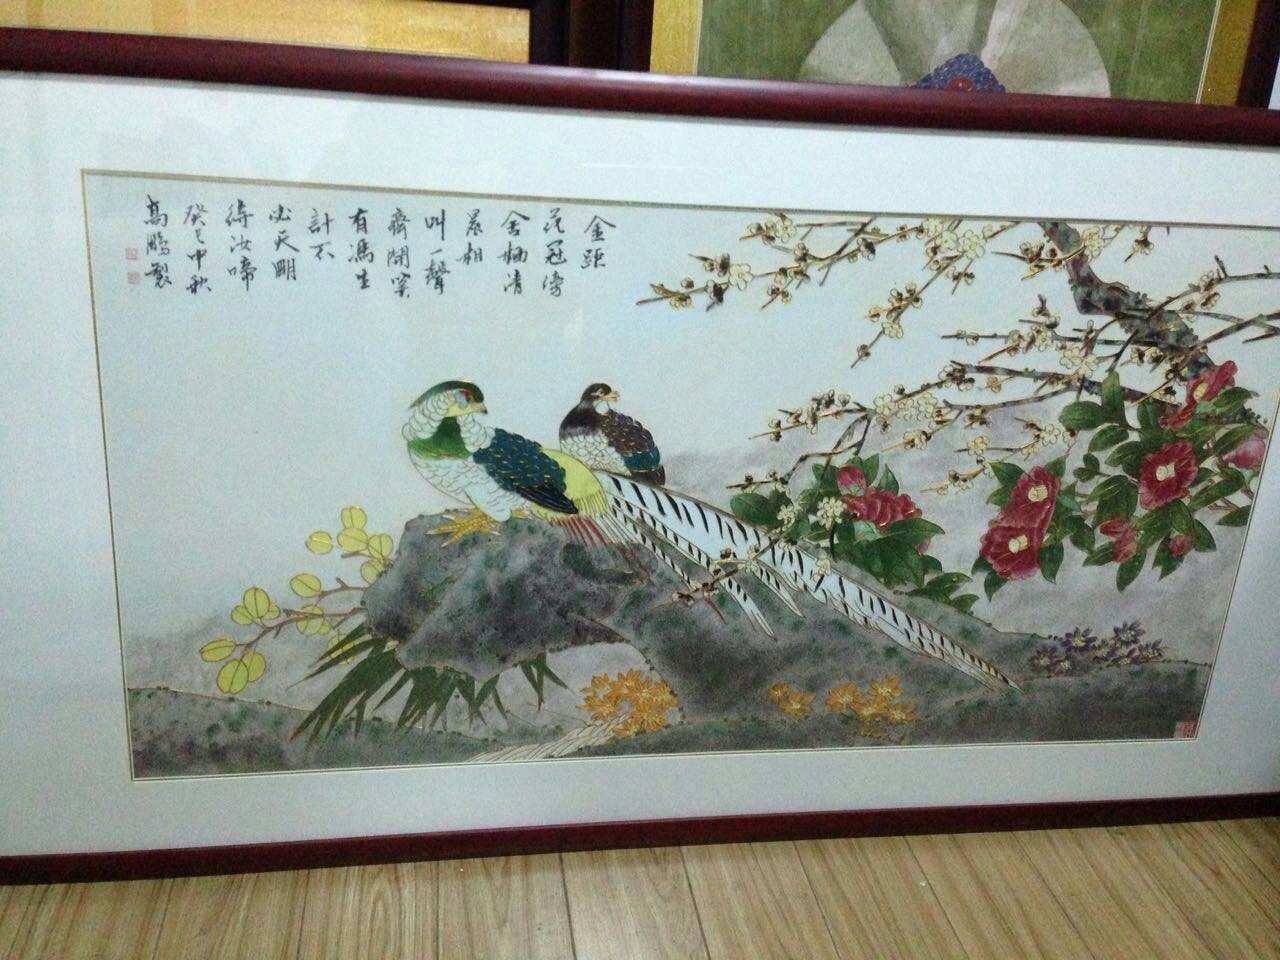 金距
花冠傍
舍栖清
晨相
叫一聲
齊開関突
有馮生
計不
必天明
待汝啼
癸巳中秋
高鵬製